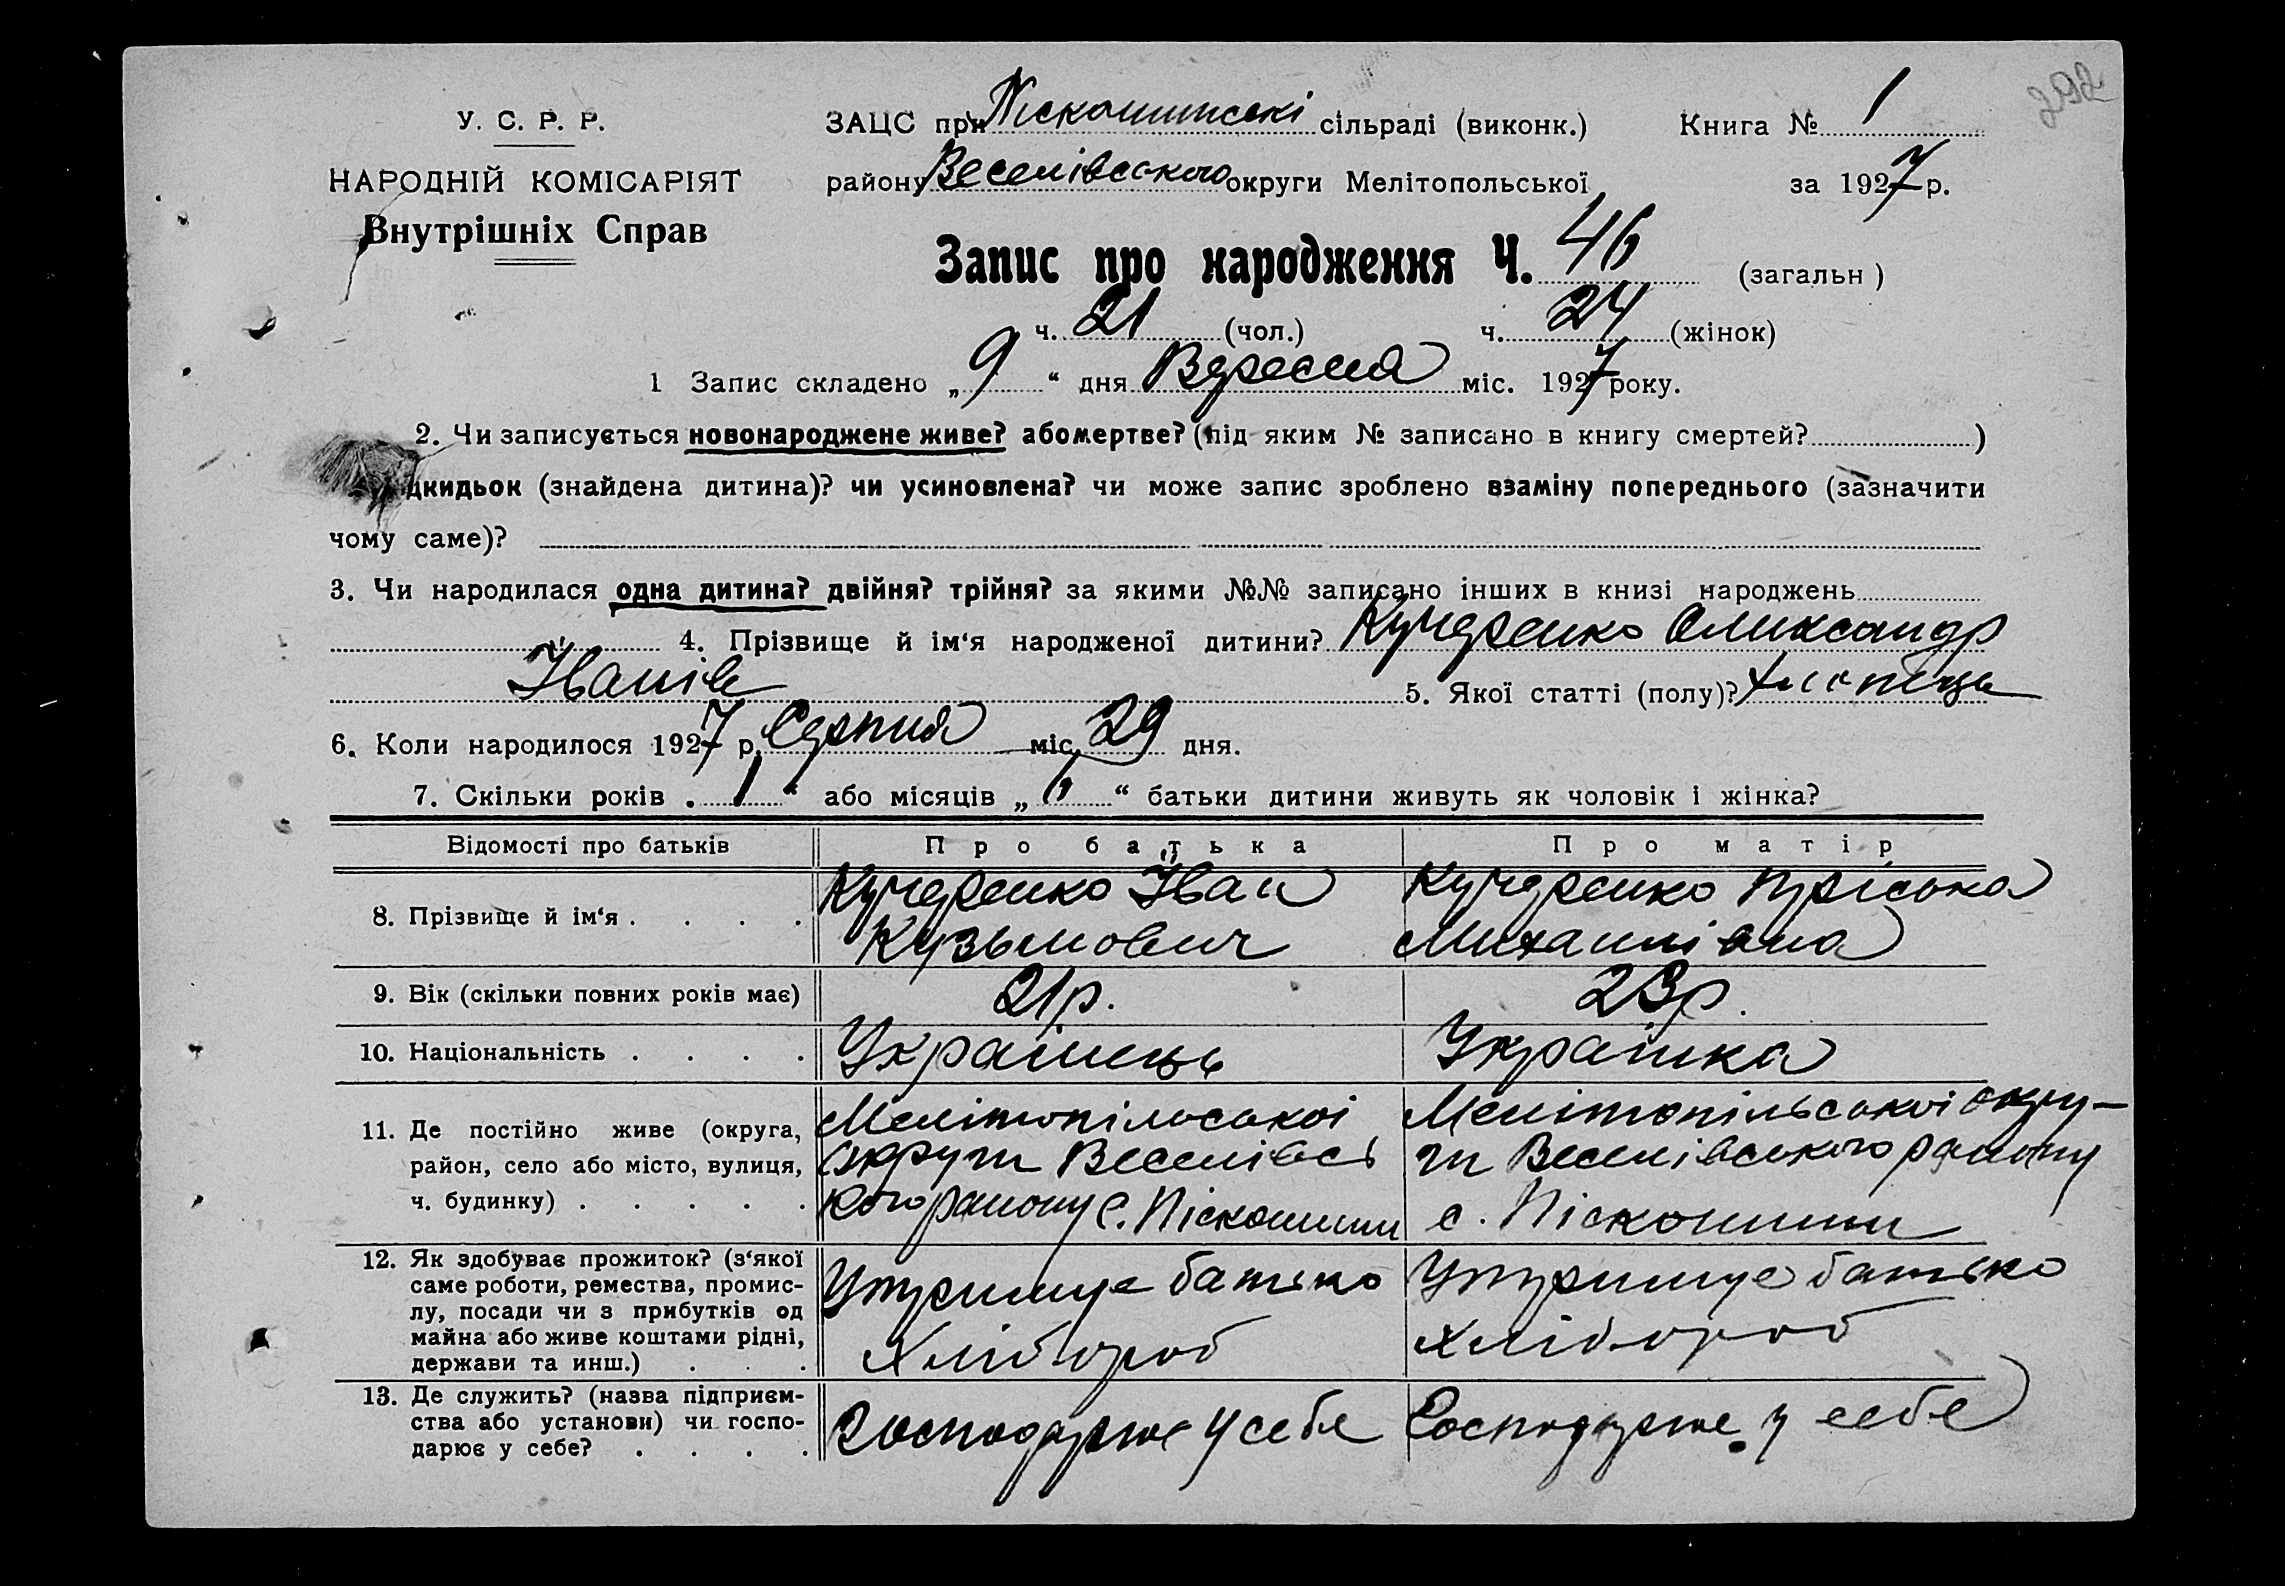 292
У. С. Р. Р.
НАРОДНІЙ КОМІСАРІЯТ
Внутрішніх Справ
ЗАЦС при Піскошинскі сільраді (виконк.) Книга № 1
району Веселівського округи Мелітопольської за 1927 р.
Запис про народження Ч. 46 (загальн )
ч. 21 (чол.) ч. 24 (жінок)
1 Запис складено „ 9 “ дня Вересня міс. 1927 року.
2. Чи записується новонароджене живе? або мертве? (під яким № записано в книгу смертей? )
дкидьок (знайдена дитина)? чи усиновлена? чи може запис зроблено взаміну попереднього (зазначити
чому саме)?
3. Чи народилася одна дитина? двійня? трійня? за якими №№ записано інших в книзі народжень
4. Прізвище й ім‘я народженої дитини? Кучеренко Олександр
Іванів 5. Якої статті (полу)? Хлопець
6. Коли народилося 1927 р. Серпня міс. 29 дня.
7. Скільки років „ 1 “ або місяців „ 6 “ батьки дитини живуть як чоловік і жінка?
Відомості про батьків Про батька Про матір
8. Прізвище й ім‘я . . . . Кучеренко Іван Кучеренко Пріська
Кузьмович Михаилівна
9. Вік (скільки повних років має) 21 р. 23 р.
10. Національність . . . . Украінець Украінка
11. Де постійно живе (округа, Мелітопільськоі Мелітопільськоі окру-
район, село або місто, вулиця, округи Веселівсь ги Веселівського району
ч. будинку) . . . . . кого району с. Піскошини с. Піскошини
12. Як здобуває прожиток? (з‘якої
саме роботи, ремества, промис- Утримує батько Утримує батько
лу, посади чи з прибутків од
майна або живе коштами рідні, Хлібороб Хлібороб
держави та инш.) . . .
13. Де служить? (назва підприєм-
ства або установи) чи госпо- Господарює у себе Господарює у себе
дарює у себе? . . . .